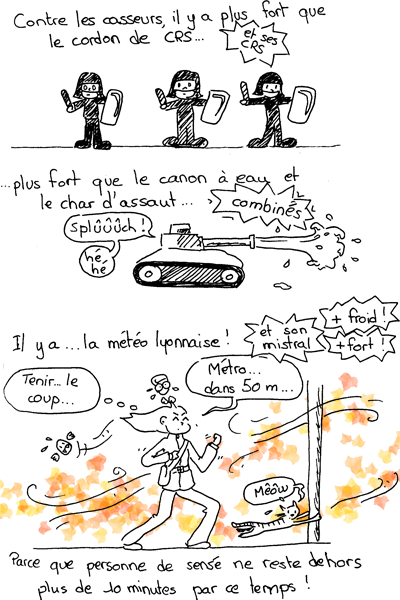 Contre les casseurs, il y a plus fort que
le cordon de CRS...
et ses
CRS
...plus fort que le canon à eau et
le char d'assaut...
combinés
splûûûch !
hé
hé
+ froid !
et son
mistral
+ fort !
Il y a... la météo lyonnaise !
Tenir... le
coup...
Métro...
dans 50 m...
Mêôw
Parce que personne de sensé ne reste dehors
plus de 10 minutes par ce temps !